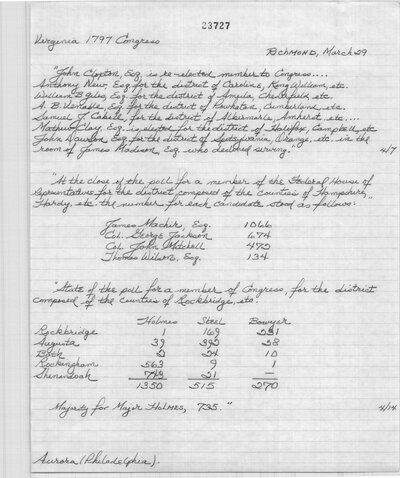 23727
Virginia 1797 Congress
Richmond, March 29
"John Clopton, Esq. is re-elected member to Congress....
Anthony New, Esq. for the district of Caroline, King William, etc.
William B. Giles, Esq. for the district of Amelia, Chesterfield etc.
A. B. Venable, Esq. for the district of Powhatan, Cumberland, etc.
Samuel J. Cabell, for the district of Albermarle, Amherst etc....
Mathew Clay, Esq. is elected for the district of Halifax, Campbell, etc
John Dawson Esq. for the district of Spotsylvania, Orange, etc. in the
room of James Madison, Esq. who declined serving." 4/7
"At the close of the poll for a member of the Federal House of
Representatives for the district composed of the counties of Hampshire,
Hardy, etc. the number for each candidate stood as follows:"
James Machir, Esq. 1066
Col. George Jackson 674
Col. John Mitchell 472
Thomas Wilson, Esq. 134
"State of the poll for a member of Congress, for the district
composed of the counties of Rockbridge, etc.
Holmes Steel Bowyer
Rockbridge 1 169 231
Augusta 39 292 28
Bath 24 10
Rockingham 563 9 1
Shenandoah 21 —
1350 515 270
Majority for Major Holmes, 735." 4/14
Aurora (Philadelphia).